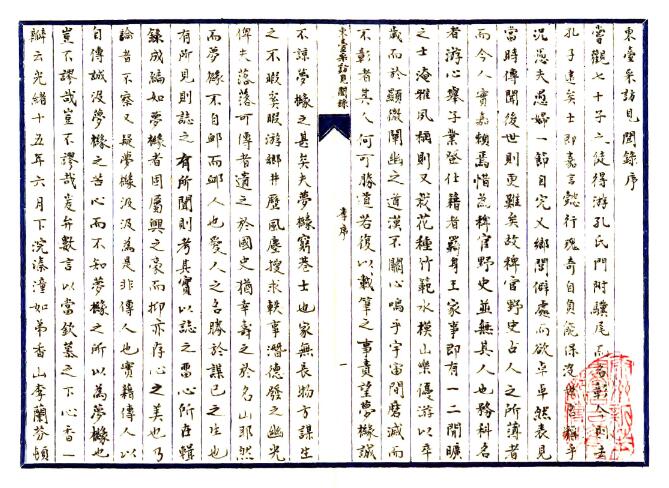 東臺采訪見聞錄序
嘗觀七十子之徒得游孔氏門附驥尾而名彰今則去
孔子遠矣士即嘉言懿行瑰奇自負能保沒世名稱乎
況愚夫愚婦一節自完又鄉閭僻處而欲卓卓然表見
當時傳聞後世則更難矣故稗官野史古人之所薄者
而今人實嘉賴焉惜為稗官野史並無其人也務科名
者游心舉子業登仕籍者羈身王家事即有一二閒曠
之士淹雅風稱則又栽花種竹範水模山樂優游以卒
歲而於顯微闡幽之道漠不關心嗚乎宇宙間磨滅而
不彰者其人何可勝道若復以載筆之事責望夢橼誠
東臺采訪見聞錄 李序 一
不諒夢橼之甚矣夫夢橼窮巷士也家無長物方謀生
之不暇奚暇游鄉井歷風塵搜求軼事潛德發之幽光
俾夫落落可傳者遺之於國史猶幸壽之於名山耶然
而夢橼不自邮而邮人也愛人之名勝於謀己之生也
有所見則誌之有所聞則考其實以誌之雷心所在輯
錄成編如夢橼者固屬興之豪而抑亦存心之美也乃
論者不察又疑夢橼汲汲為是非傳人也實藉傳人以
自傳誠沒夢橼之苦心而不知夢橼之所以為夢橼也
豈不謬哉豈不謬哉爰弁數言以當欽慕之下心香一
瓣云光緒十五年六月下浣溱潼如弟香山李蘭芬頓